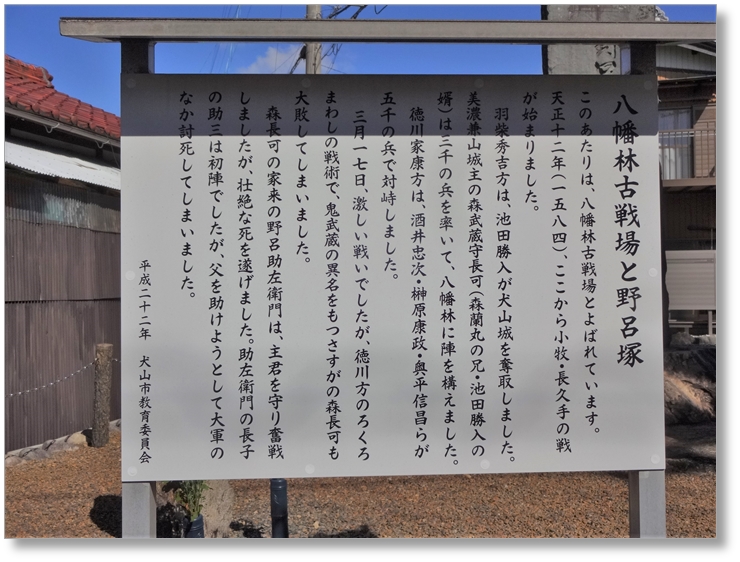 八幡林古戦場と野呂塚
このあたりは、八幡林古戦場とよばれています。
天正十二年(一五八四)、ここから小牧・長久手の戦
が始まりました。
羽柴秀吉方は、池田勝入が犬山城を奪取しました。
美濃兼山城主の森武蔵守長可(森蘭丸の兄・池田勝入の
婿)は三千の兵を率いて、八幡林に陣を構えました。
徳川家康方は、酒井忠次・榊原康政・奥平信昌らが
五千の兵で対峙しました。
三月一七日、激しい戦いでしたが、徳川方のろくろ
まわしの戦術で、鬼武蔵の異名をもつさすがの森長可も
大敗してしまいました。
森長可の家来の野呂助左衛門は、主君を守り奮戦
しましたが、壮絶な死を遂げました。助左衛門の長子
の助三は初陣でしたが、父を助けようとして大軍の
なか討死してしまいました。
平成二十二年 犬山市教育委員会